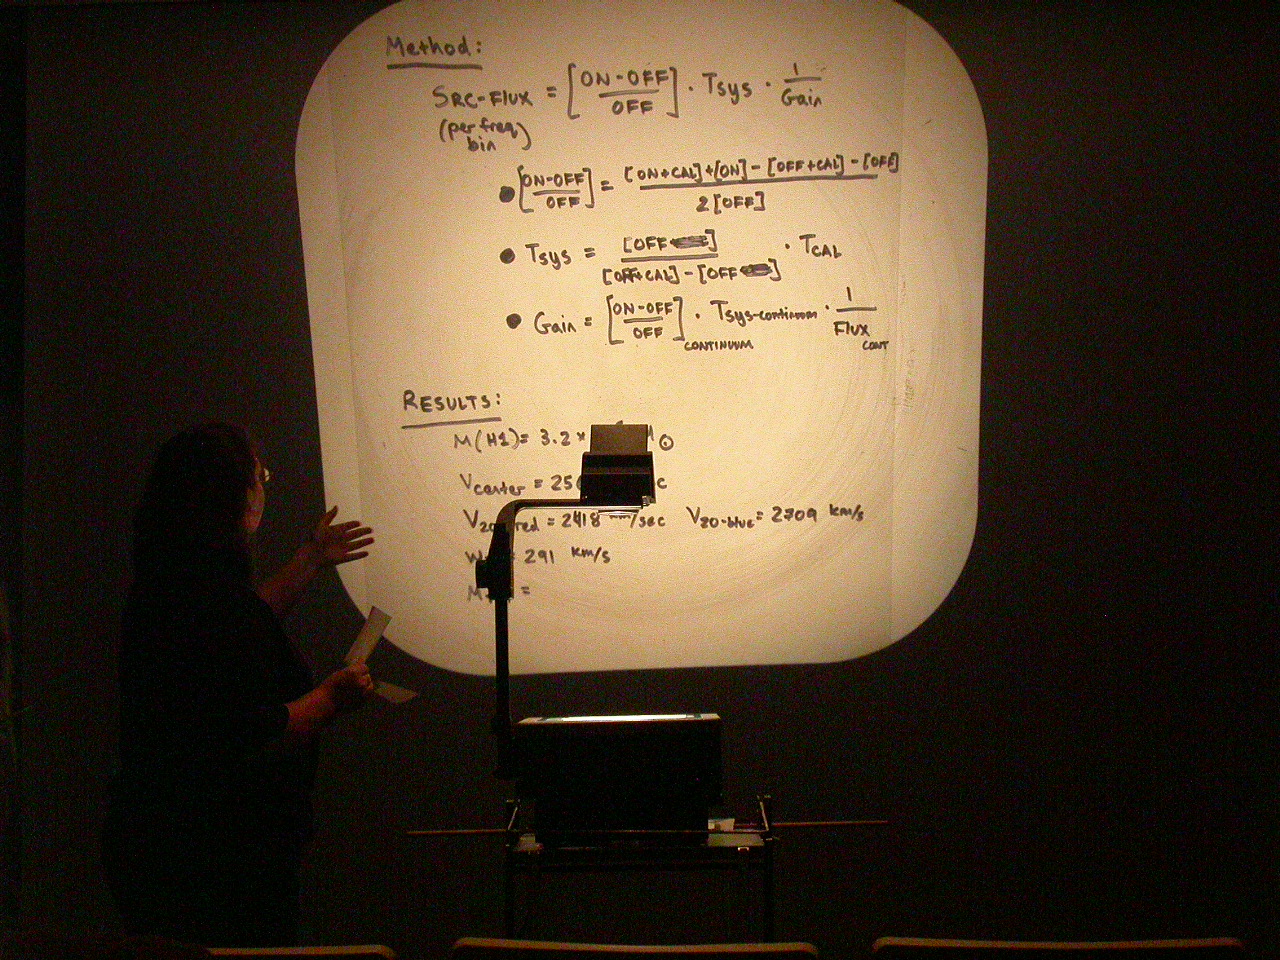 Method:
SRC-FLUX = [ON-OFF / OFF] · Tsys · 1 / Gain
(per freq
bin)
● [ON-OFF / OFF] = [ON+CAL]+[ON]-[OFF+CAL]-[OFF] / 2[OFF]
● Tsys = [OFF] / [OFF+CAL]-[OFF] · TCAL
● Gain = [ON-OFF / OFF] CONTINUUM · Tsys-continuum · 1 / Flux CONT
RESULTS:
M(H1)= 3.2 ×
Vcenter =
= 2418 km/sec V20-blue= 2709 km/s
= 291 km/s
=